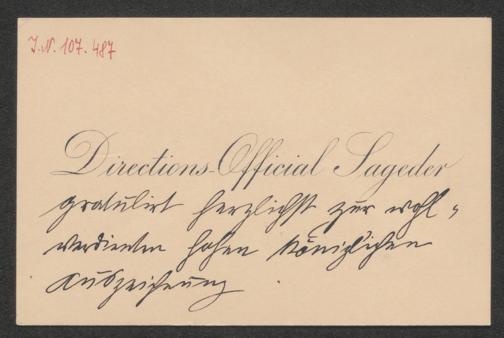 J.N. 107.487
Directions-Official Sageder
gratulirt herzlichst zur wohl-
verdienten hohen königlichen
Auszeichnung